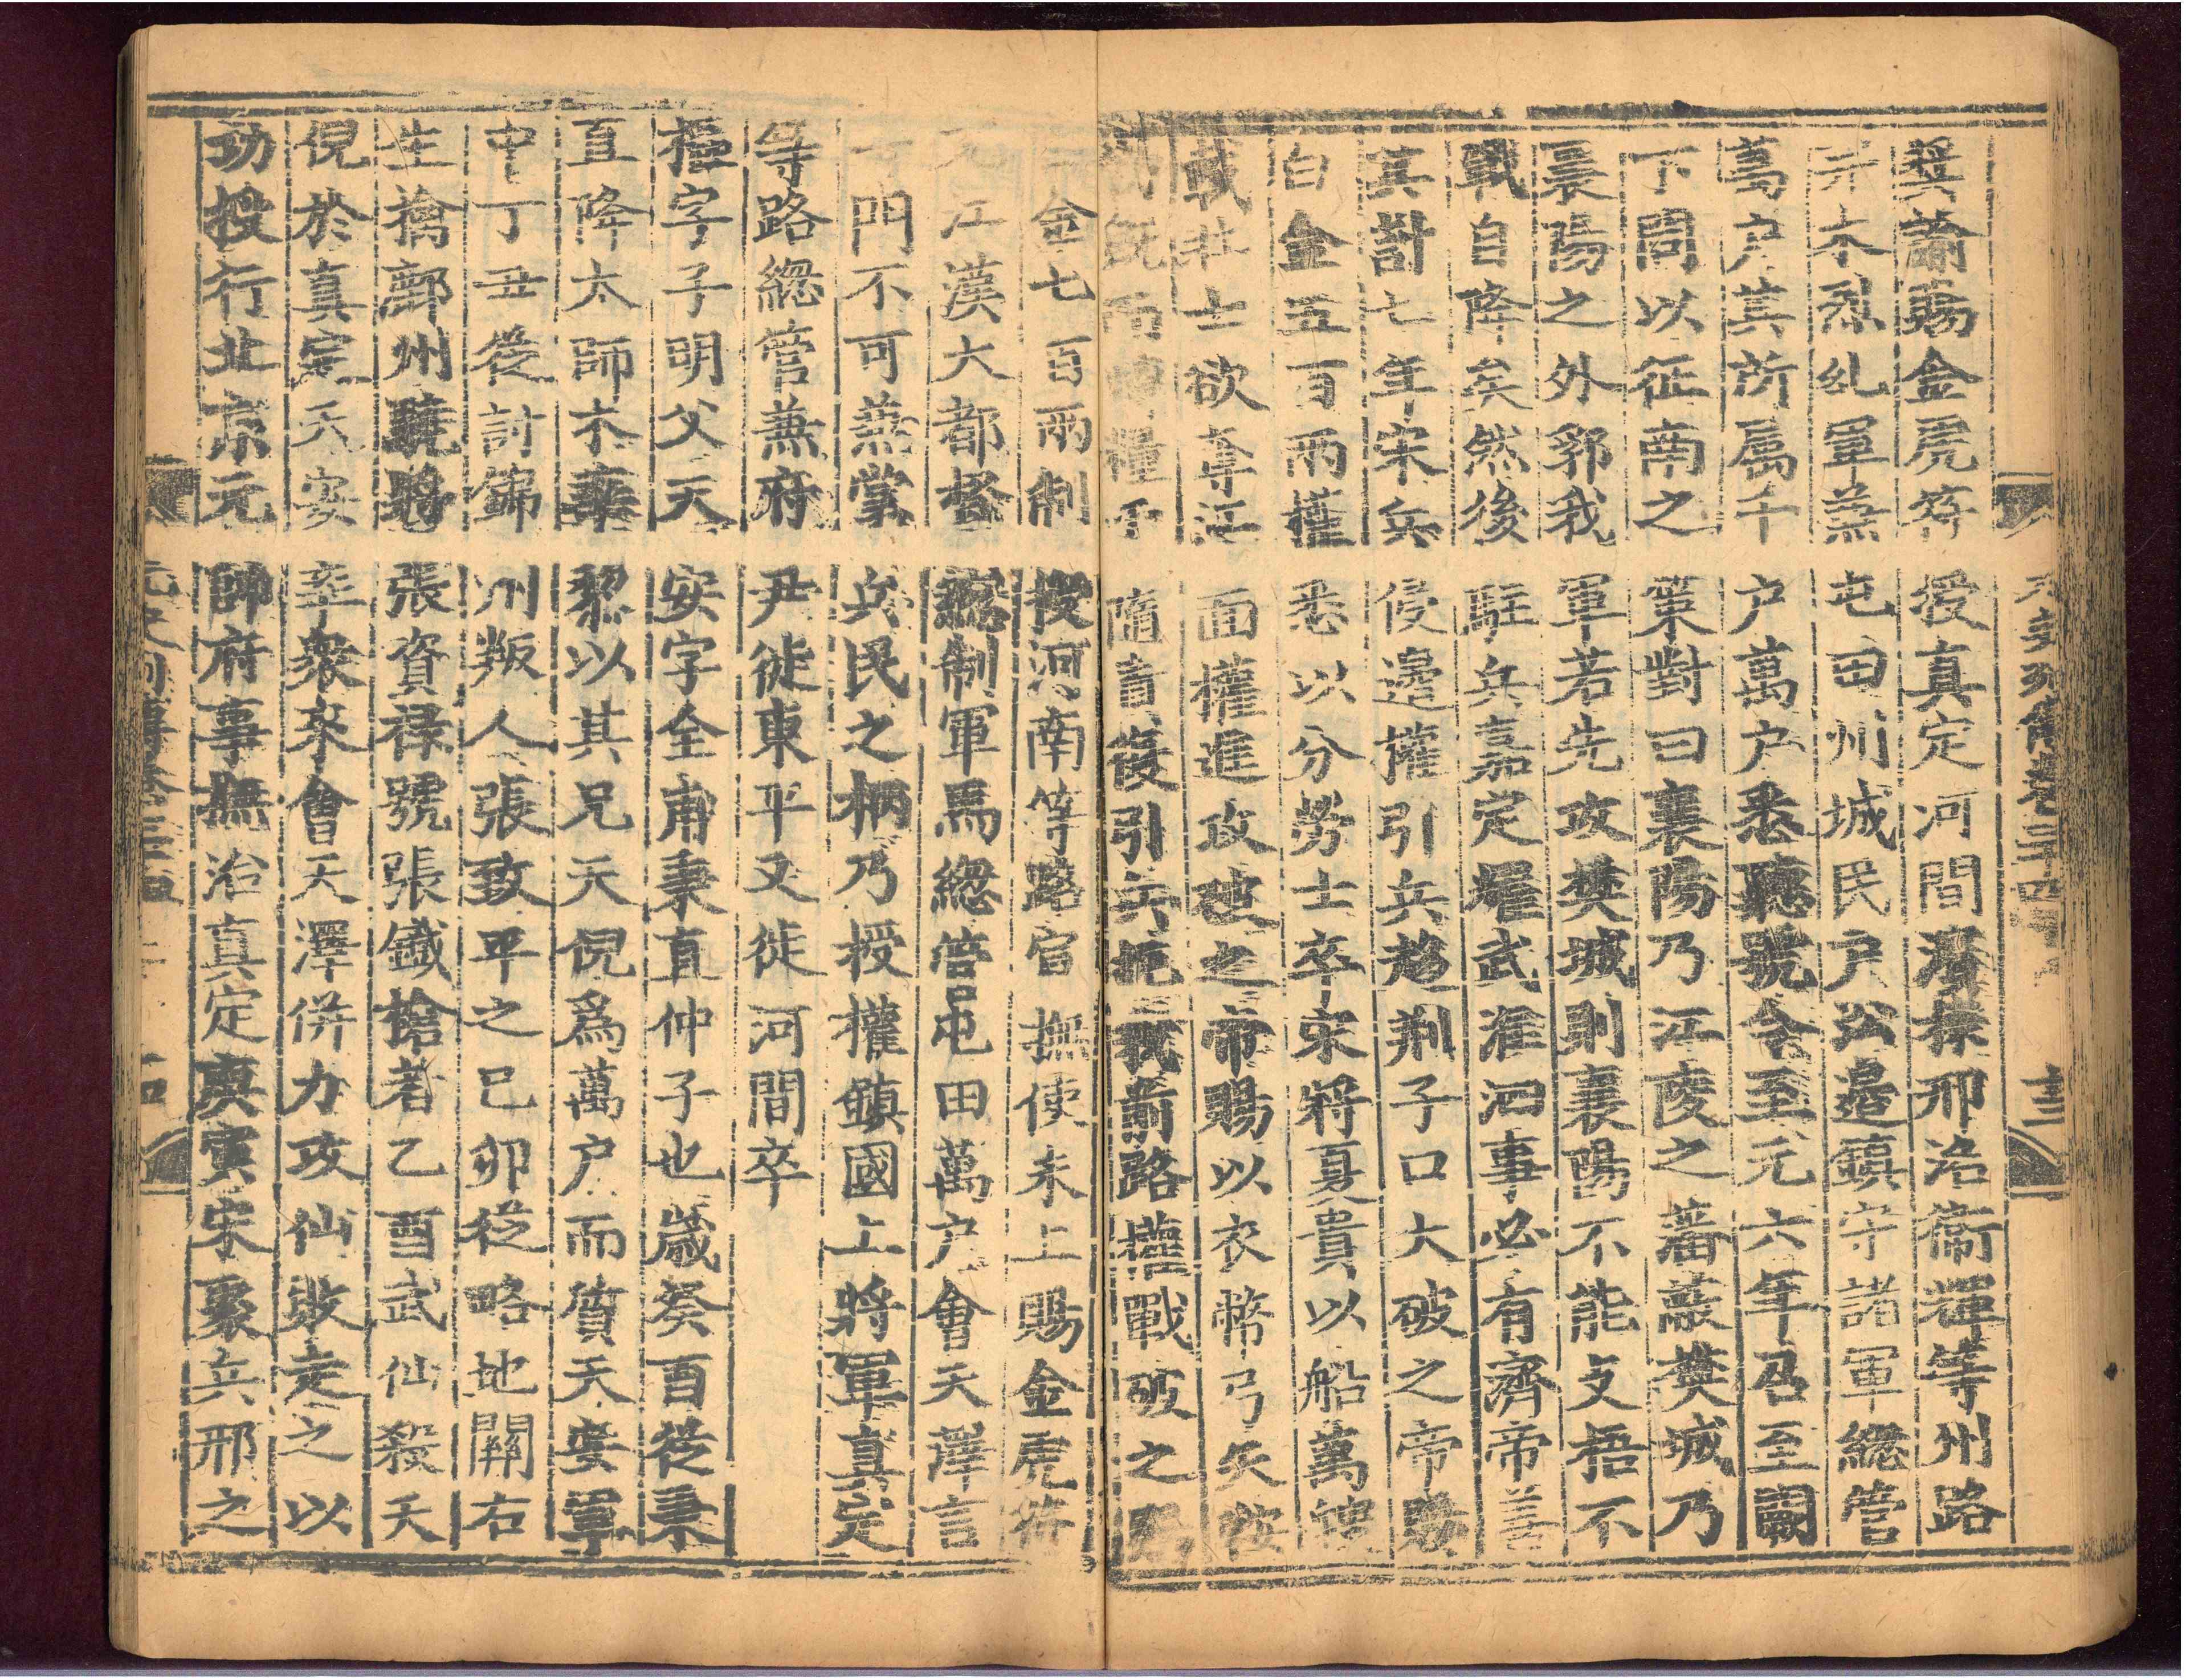 元史列傳卷三十四 十三
奬諭賜金虎符授真定河間濱棣邢洺衞輝等州路
并木烈乣軍兼屯田州城民户沿邉鎮守諸軍總管
萬户其所屬千户萬户悉聽號令至元六年召至闕
下問以征南之策對曰襄陽乃江陵之藩蔽樊城乃
襄陽之外郛我軍若先攻樊城則襄陽不能支梧不
戰自降矣然後駐兵嘉定耀武淮泗事必有濟帝善
其計七年宋兵侵邊權引兵趨荆子口大破之帝賜
白金五百兩權悉以分勞士卒宋將夏貴以船萬艘
載壯士欲奪江面權進攻破之帝賜以衣幣弓矢鞍
勒既而轉糧于隨者復引兵扼我前路權戰破之賜
金七百兩制授河南等路宣撫使未上賜金虎符
充江漢大都督總制軍馬總管屯田萬户會天澤言
一門不可兼掌兵民之柄乃授權鎮國上將軍真定
等路總管兼府尹徙東平又徙河間卒
樞字子明父天安字全甫秉直仲子也歲癸酉從秉
直降太師木華黎以其兄天倪爲萬户而質天安軍
中丁丑從討錦州叛人張致平之己卯從略地關右
生擒鄜州驍將張資祿號張鐵槍者乙酉武仙殺天
倪於真定天安率衆來會天澤併力攻仙敗走之以
功授行北京元帥府事撫治真定庚寅宋聚兵邢之